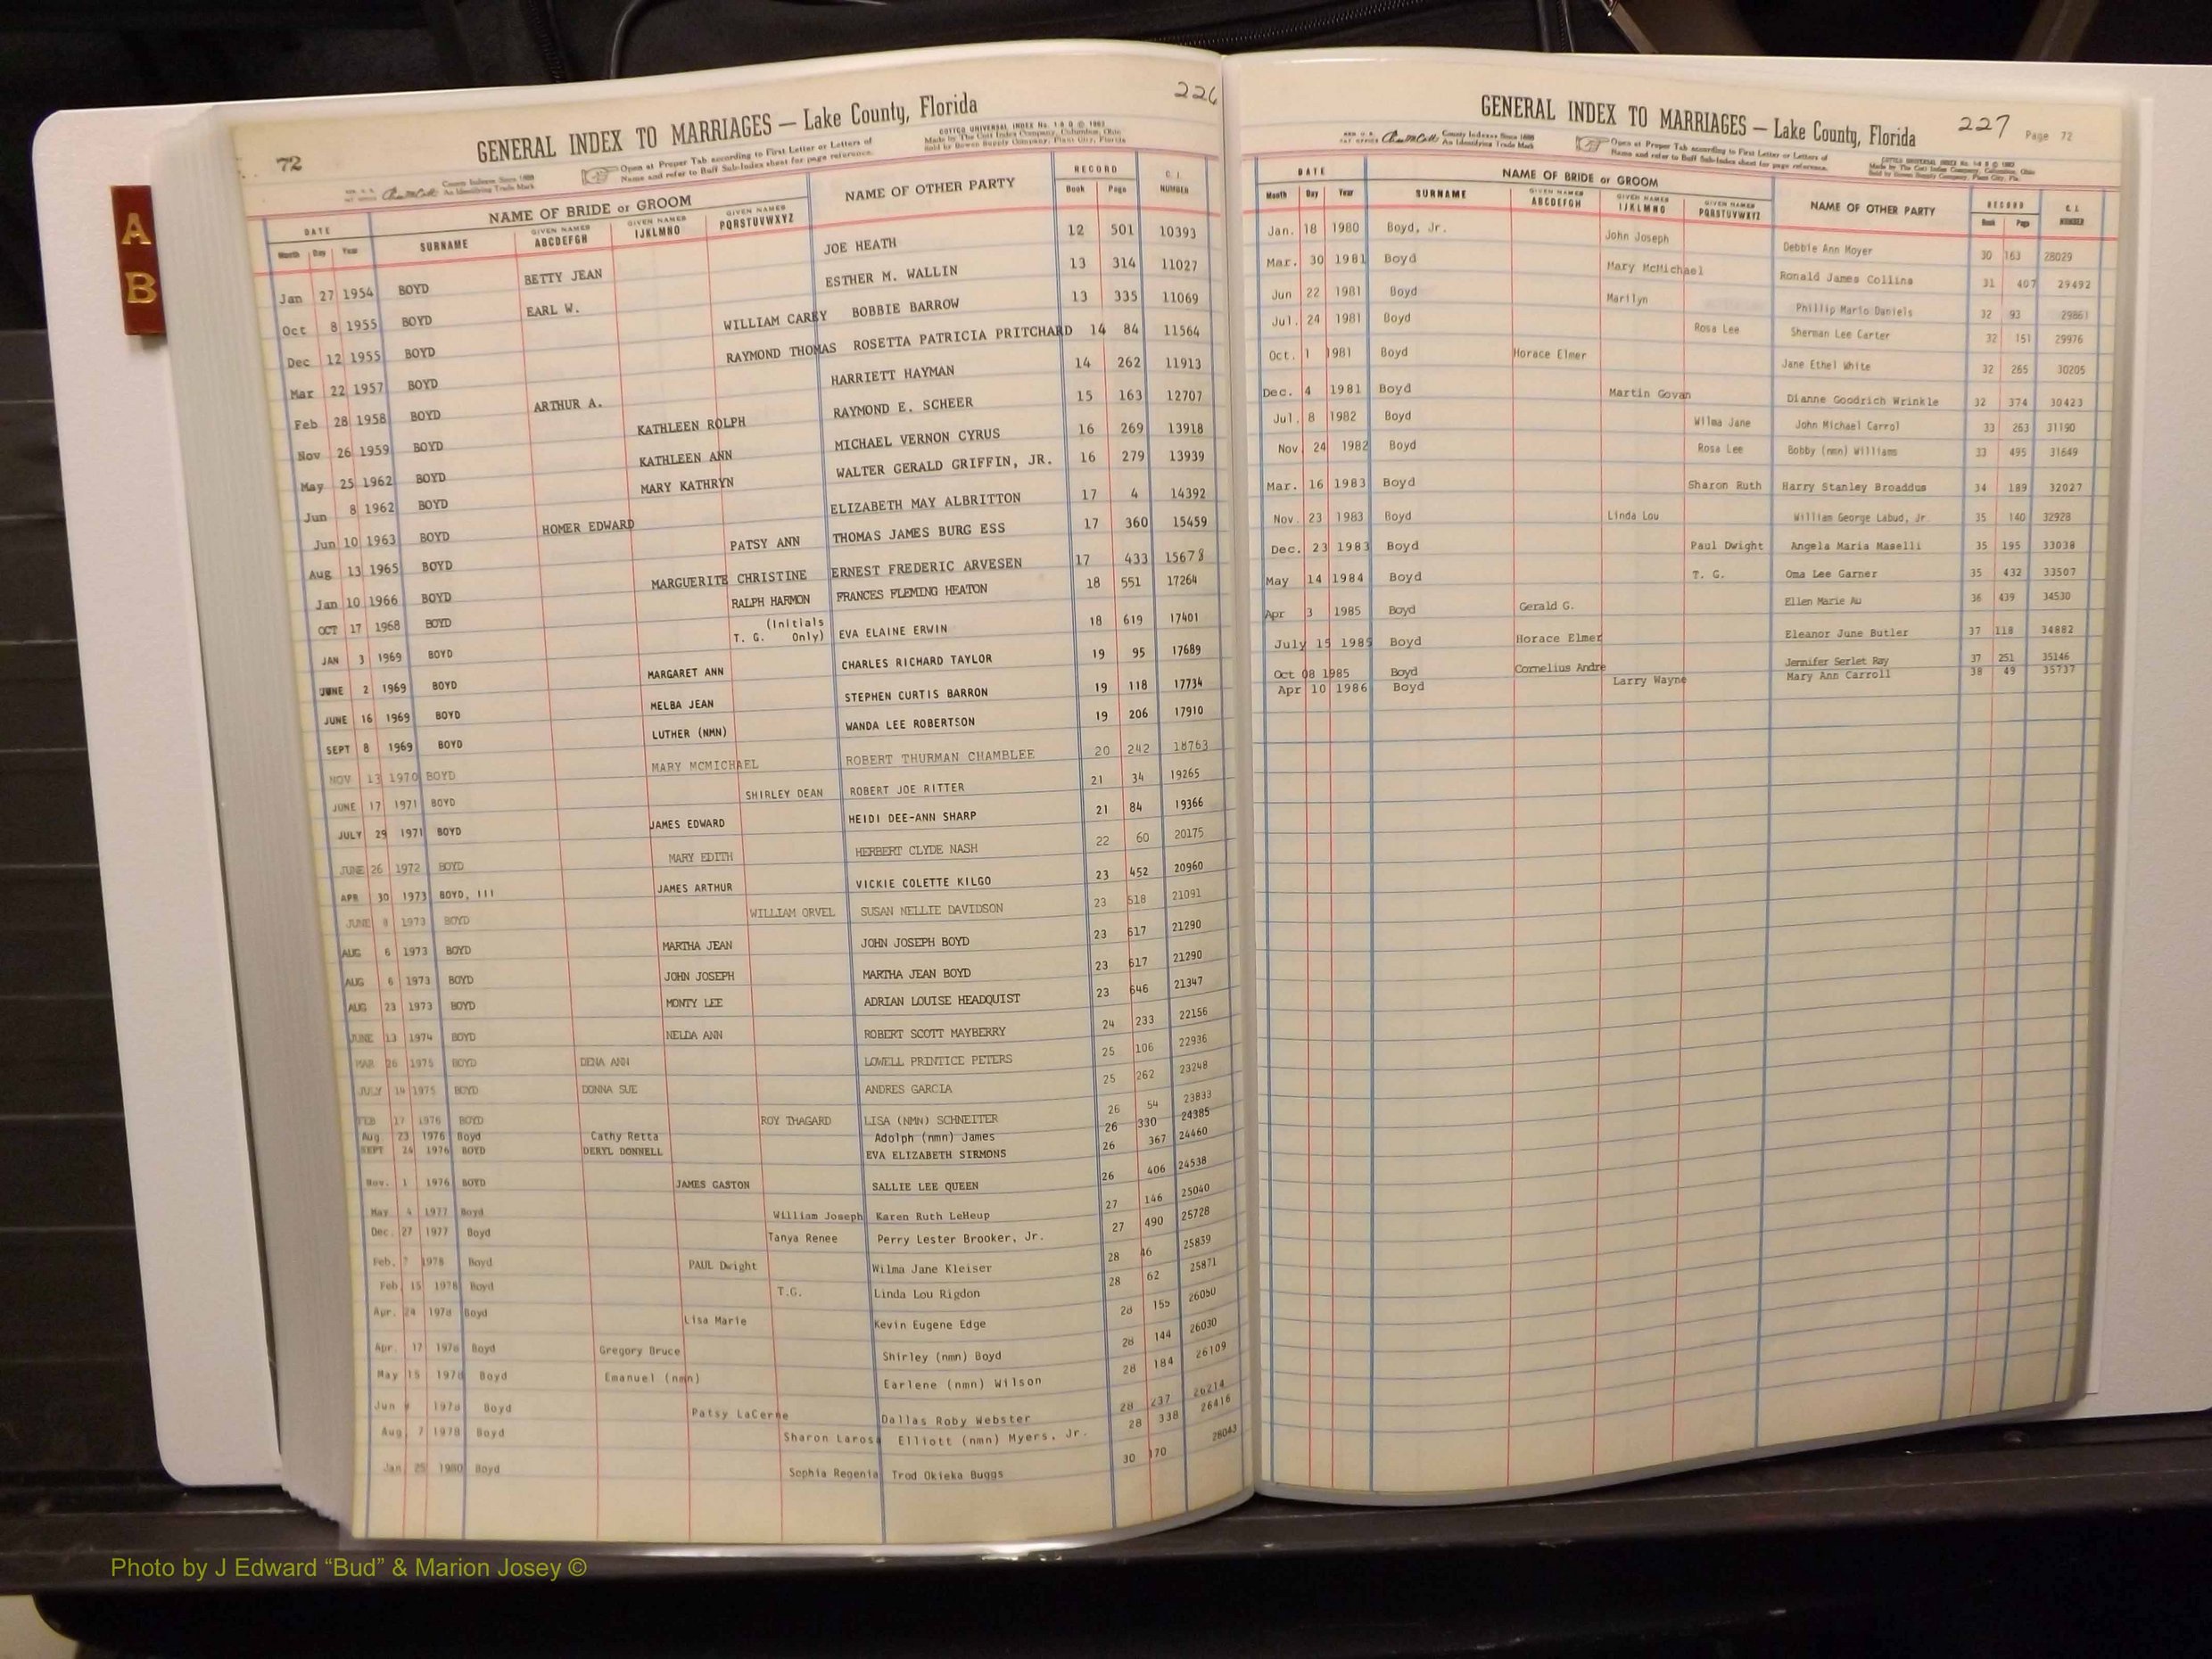 A
B
72
226
GENERAL INDEX TO MARRIAGES — Lake County, Florida
County Indexes Since 1888
An Identifying Trade Mark
Open at Proper Tab according to First Letter or Letters of
Name and refer to Buff Sub-Index sheet for page reference.
COTTCO UNIVERSAL INDEX
Made by The Cott Index Company, Columbus, Ohio
Sold by Bowen Supply Company, Plant City, Florida
DATE NAME OF BRIDE or GROOM NAME OF OTHER PARTY RECORD C. I. NUMBER
Month Day Year SURNAME GIVEN NAMES ABCDEFGH GIVEN NAMES IJKLMNO GIVEN NAMES PQRSTUVWXYZ Book Page
Jan 27 1954 BOYD BETTY JEAN JOE HEATH 12 501 10393
Oct 8 1955 BOYD EARL W. ESTHER M. WALLIN 13 314 11027
Dec 12 1955 BOYD WILLIAM CAREY BOBBIE BARROW 13 335 11069
Mar 22 1957 BOYD RAYMOND THOMAS ROSETTA PATRICIA PRITCHARD 14 84 11564
Feb 28 1958 BOYD ARTHUR A. HARRIETT HAYMAN 14 262 11913
Nov 26 1959 BOYD KATHLEEN ROLPH RAYMOND E. SCHEER 15 163 12707
May 25 1962 BOYD KATHLEEN ANN MICHAEL VERNON CYRUS 16 269 13918
Jun 8 1962 BOYD MARY KATHRYN WALTER GERALD GRIFFIN, JR. 16 279 13939
Jun 10 1963 BOYD HOMER EDWARD ELIZABETH MAY ALBRITTON 17 4 14392
Aug 13 1965 BOYD PATSY ANN THOMAS JAMES BURG ESS 17 360 15459
Jan 10 1966 BOYD MARGUERITE CHRISTINE ERNEST FREDERIC ARVESEN 17 433 15678
OCT 17 1968 BOYD RALPH HARMON FRANCES FLEMING HEATON 18 551 17264
JAN 3 1969 BOYD T. G. (Initials Only) EVA ELAINE ERWIN 18 619 17401
JUNE 2 1969 BOYD MARGARET ANN CHARLES RICHARD TAYLOR 19 95 17689
JUNE 16 1969 BOYD MELBA JEAN STEPHEN CURTIS BARRON 19 118 17734
SEPT 8 1969 BOYD LUTHER (NMN) WANDA LEE ROBERTSON 19 206 17910
NOV 13 1970 BOYD MARY MCMICHAEL ROBERT THURMAN CHAMBLEE 20 242 18763
JUNE 17 1971 BOYD SHIRLEY DEAN ROBERT JOE RITTER 21 34 19265
JULY 29 1971 BOYD JAMES EDWARD HEIDI DEE-ANN SHARP 21 84 19366
JUNE 26 1972 BOYD MARY EDITH HERBERT CLYDE NASH 22 60 20175
APR 30 1973 BOYD, III JAMES ARTHUR VICKIE COLETTE KILGO 23 452 20960
JUNE 8 1973 BOYD WILLIAM ORVEL SUSAN NELLIE DAVIDSON 23 518 21091
AUG 6 1973 BOYD MARTHA JEAN JOHN JOSEPH BOYD 23 617 21290
AUG 6 1973 BOYD JOHN JOSEPH MARTHA JEAN BOYD 23 617 21290
AUG 23 1973 BOYD MONTY LEE ADRIAN LOUISE HEADQUIST 23 646 21347
JUNE 13 1974 BOYD NELDA ANN ROBERT SCOTT MAYBERRY 24 233 22156
MAR 26 1975 BOYD DENA ANN LOWELL PRINTICE PETERS 25 106 22936
JULY 14 1975 BOYD DONNA SUE ANDRES GARCIA 25 262 23248
FEB 17 1976 BOYD ROY THAGARD LISA (NMN) SCHNEITER 26 54 23833
Aug 23 1976 Boyd Cathy Retta Adolph (nmn) James 26 330 24385
SEPT 24 1976 BOYD DERYL DONNELL EVA ELIZABETH SIRMONS 26 367 24460
Nov. 1 1976 BOYD JAMES GASTON SALLIE LEE QUEEN 26 406 24538
May 4 1977 Boyd William Joseph Karen Ruth LeHeup 27 146 25040
Dec. 27 1977 Boyd Tanya Renee Perry Lester Brooker, Jr. 27 490 25728
Feb. 7 1978 Boyd PAUL Dwight Wilma Jane Kleiser 28 46 25839
Feb 15 1978 Boyd T.G. Linda Lou Rigdon 28 62 25871
Apr. 24 1978 Boyd Lisa Marie Kevin Eugene Edge 28 155 26050
Apr. 17 1978 Boyd Gregory Bruce Shirley (nmn) Boyd 28 144 26030
May 15 1978 Boyd Emanuel (nmn) Earlene (nmn) Wilson 28 184 26109
Jun 1978 Boyd Patsy LaCerne Dallas Roby Webster 28 237 26214
Aug 7 1978 Boyd Sharon Larosa Elliott (nmn) Myers, Jr. 28 338 26416
Jan 25 1980 Boyd Sophia Regenia Trod Okieka Buggs 30 170 28043
GENERAL INDEX TO MARRIAGES — Lake County, Florida
227 Page 72
County Indexes Since 1888
An Identifying Trade Mark
Open at Proper Tab according to First Letter or Letters of
Name and refer to Buff Sub-Index sheet for page reference.
DATE NAME OF BRIDE or GROOM NAME OF OTHER PARTY RECORD C. I. NUMBER
Month Day Year SURNAME GIVEN NAMES ABCDEFGH GIVEN NAMES IJKLMNO GIVEN NAMES PQRSTUVWXYZ Book Page
Jan. 18 1980 Boyd, Jr. John Joseph Debbie Ann Moyer 30 163 28029
Mar. 30 1981 Boyd Mary McMichael Ronald James Collins 31 407 29492
Jun 22 1981 Boyd Marilyn Phillip Mario Daniels 32 93 29861
Jul. 24 1981 Boyd Rosa Lee Sherman Lee Carter 32 151 29976
Oct. 1 1981 Boyd Horace Elmer Jane Ethel White 32 265 30205
Dec. 4 1981 Boyd Martin Govan Dianne Goodrich Wrinkle 32 374 30423
Jul. 8 1982 Boyd Wilma Jane John Michael Carrol 33 263 31190
Nov. 24 1982 Boyd Rosa Lee Bobby (nmn) Williams 33 495 31649
Mar. 16 1983 Boyd Sharon Ruth Harry Stanley Broaddus 34 189 32027
Nov. 23 1983 Boyd Linda Lou William George Labud, Jr. 35 140 32928
Dec. 23 1983 Boyd Paul Dwight Angela Maria Maselli 35 195 33038
May 14 1984 Boyd T. G. Oma Lee Garner 35 432 33507
Apr 3 1985 Boyd Gerald G. Ellen Marie Au 36 439 34530
July 15 1985 Boyd Horace Elmer Eleanor June Butler 37 118 34882
Oct 08 1985 Boyd Cornelius Andre Jennifer Serlet Ray 37 251 35146
Apr 10 1986 Boyd Larry Wayne Mary Ann Carroll 38 49 35737
Photo by J Edward “Bud” & Marion Josey ©